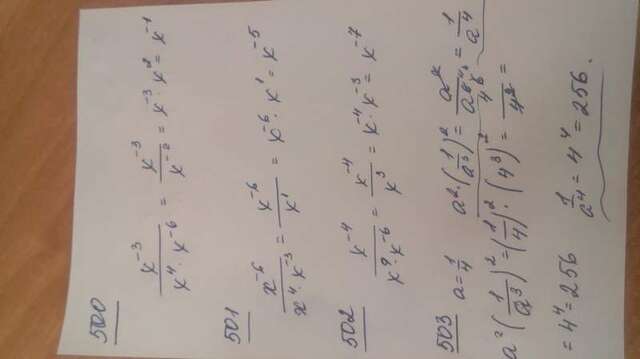 500
x⁻³/(x⁴·x⁻⁶) = x⁻³/x⁻² = x⁻³·x² = x⁻¹
501
x⁻⁶/(x⁴·x⁻³) = x⁻⁶/x¹ = x⁻⁶·x¹ = x⁻⁵
502
x⁻⁴/(x⁹·x⁻⁶) = x⁻⁴/x³ = x⁻⁴·x⁻³ = x⁻⁷
503 a = 1/4 a²·(1/a³)² = a²/a⁶ = 1/a⁴
a²(1/a³)² = (1/4)²·(4³)² = 4⁶/4² =
= 4⁴ = 256 1/a⁴ = 4⁴ = 256.